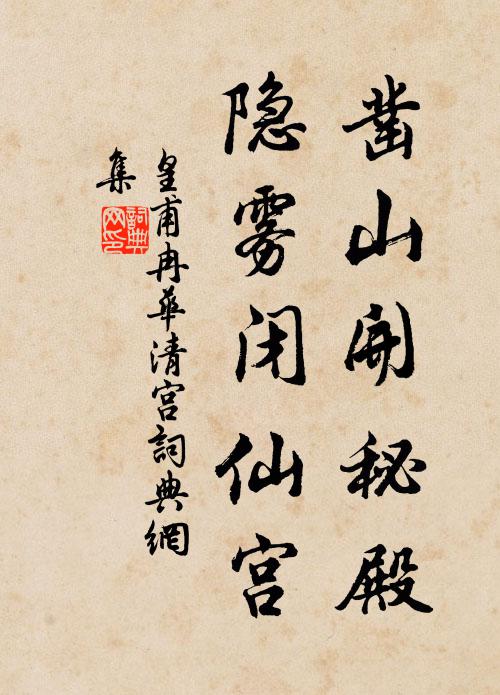 凿山开秘殿
隐雾闭仙宫
皇甫冉華清宫詞典網
集
詞典
网印